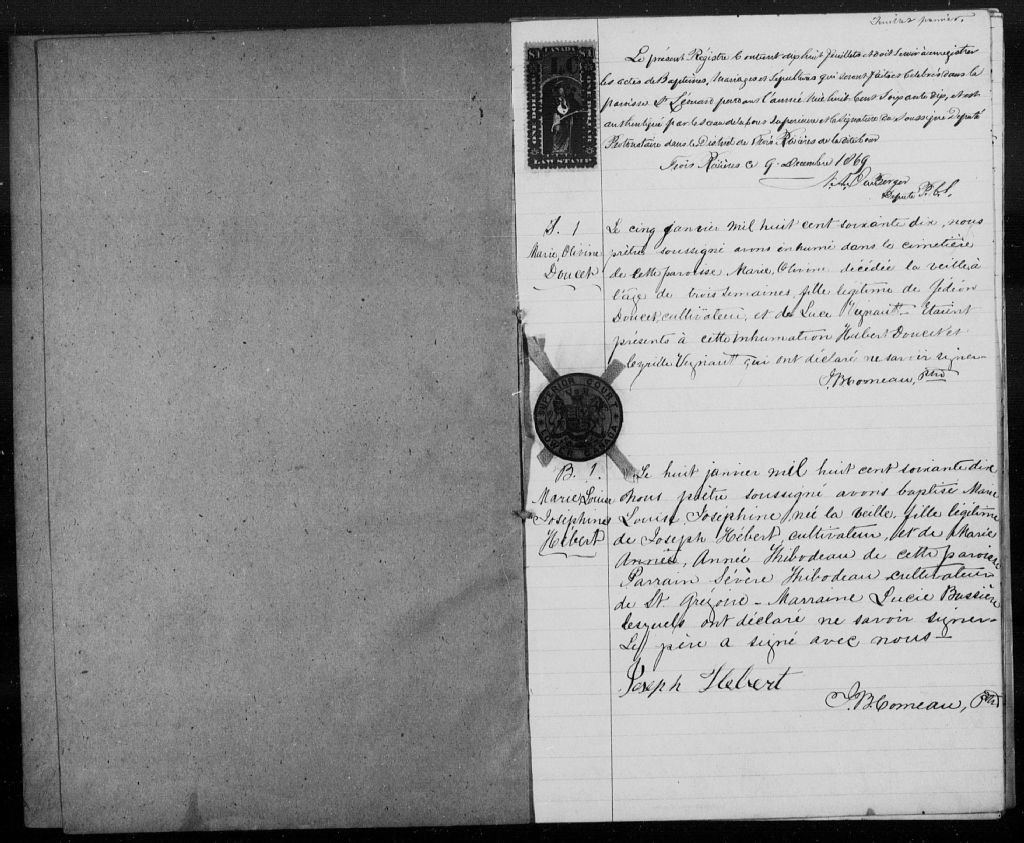 Feuillet premier.
Le présent Régistre Contient dix huit feuillets et doit servir à enregistrer
les actes de Baptêmes, Mariages et Sépultures qui seront faits et célébrés dans la
paroisse St Léonard pendant l'année mil huit Cent Soixante dix, et est
authentiqué par le sceau de la Cour Supérieure et la signature du Soussigné Député
Protonotaire dans le District de Trois Rivières de ladite Cour
Trois Rivières ce 9 Décembre 1869
Député P.C.S.
CANADA
$1 $1
LC
ONE DOLLAR
LAW STAMP
S. 1
Marie, Olivine
Doucet
Le cinq janvier mil huit cent soixante dix, nous
prêtre soussigné avons inhumé dans le cimetière
de cette paroisse Marie, Olivine décédée la veille à
l'âge de trois semaines, fille légitime de Jédéon
Doucet, cultivateur, et de Luce Vignault - Etaient
présents à cette inhumation Hubert Doucet et
Cyrille Vignault qui ont déclaré ne savoir signer-
J.B. Comeau, Ptre
SUPERIOR COURT
LOWER CANADA
B. 1.
Marie Louise
Joséphine
Hébert
Le huit janvier mil huit cent soixante dix
Nous prêtre soussigné avons baptisé Marie
Louise, Joséphine, née la veille, fille légitime
de Joseph Hébert, cultivateur, et de Marie
Année, Année Thibodeau de cette paroisse
Parrain Sévère Thibodeau cultivateur
de St. Grégoire - Marraine Lucie Bussière
lesquels ont déclaré ne savoir signer-
Le père a signé avec nous-
Joseph Hebert
J.B. Comeau, Ptre